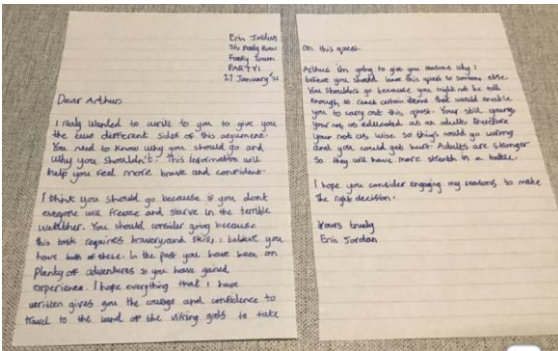 Erin Jordan
Party Road
Funky Town
PAR TY1
27 January
Dear Arthur
I really wanted to write to you to give you
the two different sides of this argument.
You need to know why you should go and
why you shouldn't. This information will
help you feel more brave and confident.
I think you should go because if you dont
everyone will freeze and starve in the terrible
weather. You should consider going because
this task requires bravery and skill, i believe you
have both of these. In the past you have been on
plenty of adventures so you have gained
experience. I hope everything that i have
written gives you the courage and confidence to
travel to the land of the viking gods to take
on this quest.
Arthur im going to give you reasons why i
believe you should leave this quest to someone else.
You shouldn't go because you might not be tall
enough to reach certain items that would enable
you to carry out this quest. Your still young,
your not as educated as an adult therefore
your not as wise so things could go wrong
and you could get hurt. Adults are stronger
so they will have more strength in a battle.
I hope you consider engaging my reasons to make
the right decision.
Yours truely
Erin Jordan